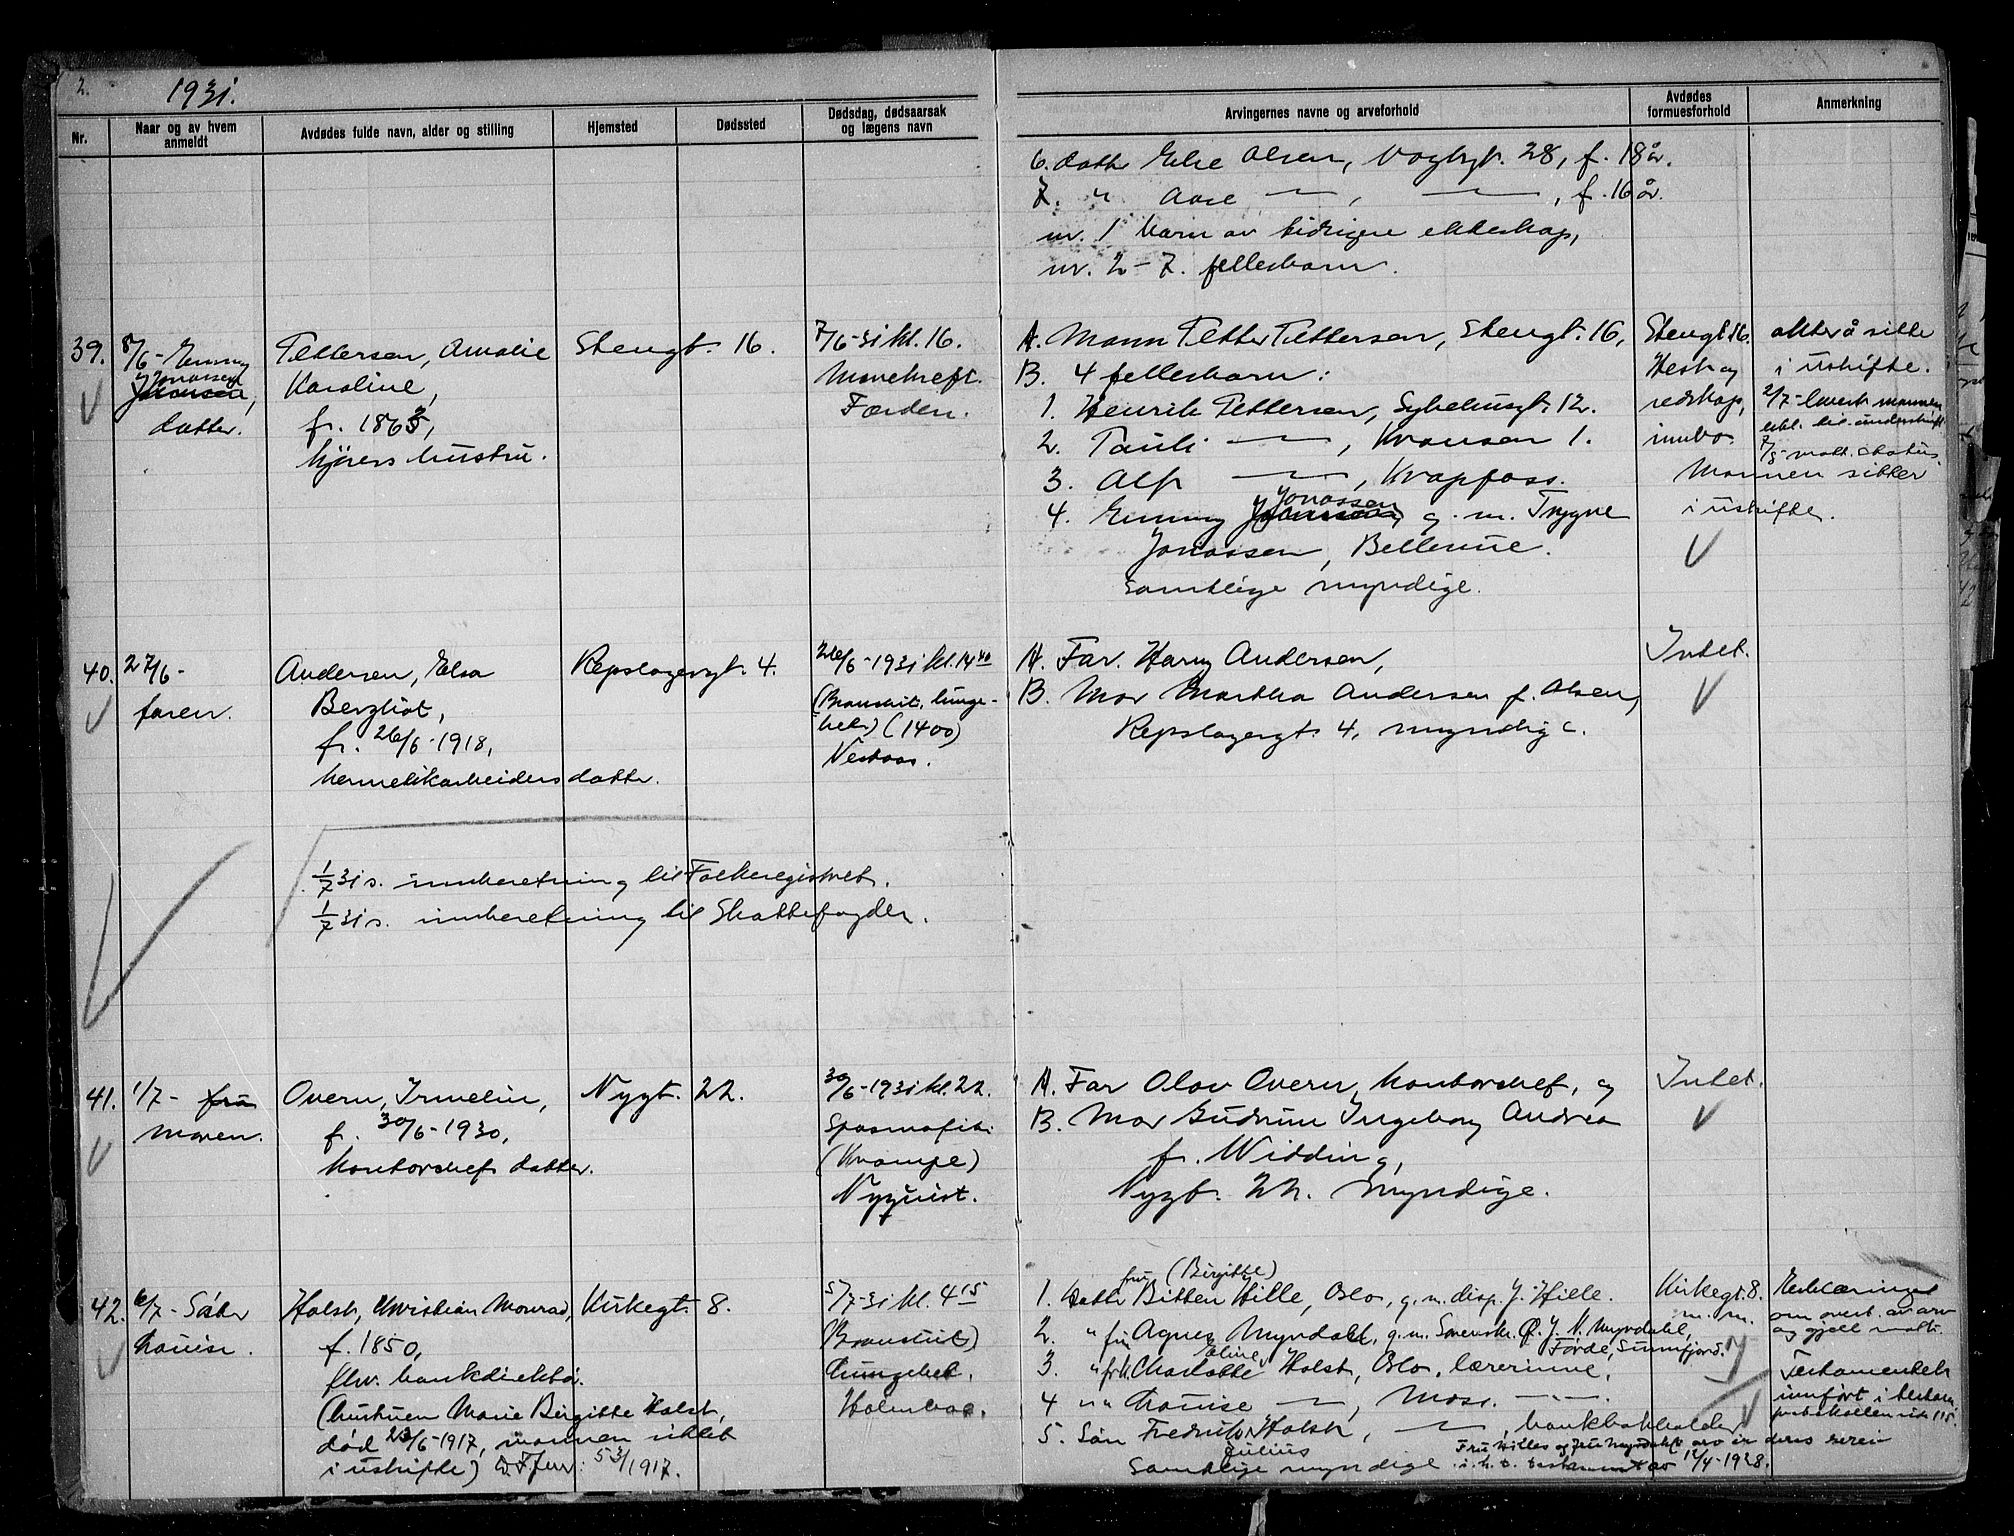 2.
1931.
Nr.
Naar og av hvem anmeldt
Avdødes fulde navn, alder og stilling
Hjemsted
Dødssted
Dødsdag, dødsaarsak og lægens navn
Arvingernes navne og arveforhold
Avdødes formuesforhold
Anmerkning
6. datter Else Olsen, Vogtsgt. 28, f. 18 år.
7. " Aase — , — , f. 16 år.
nr. 1 barn av tidligere ekteskap,
nr. 2 - 7. fellesbarn.
39.
8/6 - Emmy
Jonassen
datter.
Pettersen, Amalie
Karoline,
f. 1863,
kjørers hustru.
Stengt. 16.
7/6 - 31 kl. 16.
Mavekreft.
Førden.
A. Mann Petter Pettersen, Stengt. 16,
B. 4 fellesbarn:
1. Henrik Pettersen, Sykehusgt. 12.
2. Pauli — , Kransen 1.
3. Alf — , Krapfoss.
4. Emmy Jonassen g. m. Trygve
Jonassen, Bellevue.
Samtlige myndige.
Stengt. 16.
Hest og
redskap,
innbo.
akter å sitte
i uskifte.
2/7 - levert mannen
erkl. til underskrift.
Mannen sitter
i uskifte.
40.
27/6 -
faren.
Andersen, Elsa
Bergliot,
f. 26/6 - 1918,
hermetikarbeiders datter.
Repslagergt. 4.
26/6 - 1931 kl. 14 40
(Bronchit, lunge-
bet.) (1400)
Nestaas.
A. Far. Harry Andersen,
B. Mor Martha Andersen f. Olsen,
Repslagergt. 4, myndige.
Intet.
1/7 31 s. innberetning til Folkeregistret.
1/7 31 s. innberetning til Skattefogden.
41.
1/7 - fru
moren.
Overn, Irmelin,
f. 30/6 - 1930,
kontorchefs datter.
Nygt. 22.
30/6 - 1931 kl. 22.
Spasmofili
(Krampe)
Nyquist.
A. Far Olav Overn, kontorchef, og
B. Mor Gudrun Ingeborg Andrea
f. Widding,
Nygt. 22. Myndige.
Intet.
42.
6/7 - Datter
Louise.
Holst, Christian Monrad,
f. 1850,
fhv. bankdirektør.
(hustruen Marie Birgitte Holst,
død 23/6 - 1917, mannen sittet
i uskifte) 5 3/1917.
Kirkegt. 8.
5/7 - 31 kl. 4 15
(Bronchit)
Lungebet.
Holmboe.
fru (Birgitte)
1. Datter Bitten Hille, Oslo, g. m. disp. J. Hille.
2. " fru Agnes Myrdahl, g. m. J. N. Myrdahl,
Førde, Sunnfjord.
Eline
3. " frk. Charlotte Holst, Oslo, lærerinne,
4 " " Louise — , Moss. — " —
5. Søn Fredrik Holst, — , bankbokholder
Julius
Samtlige myndige.
Fru Hilles og fru Myrdahls arv er deres særeie
i h. t. testament av 12/4 - 1928.
Kirkegt. 8.
m. m.
Erklæringer
om overt. av arv
og gjeld mott.
Testamentet
innført i testam.
protokollen side 115.